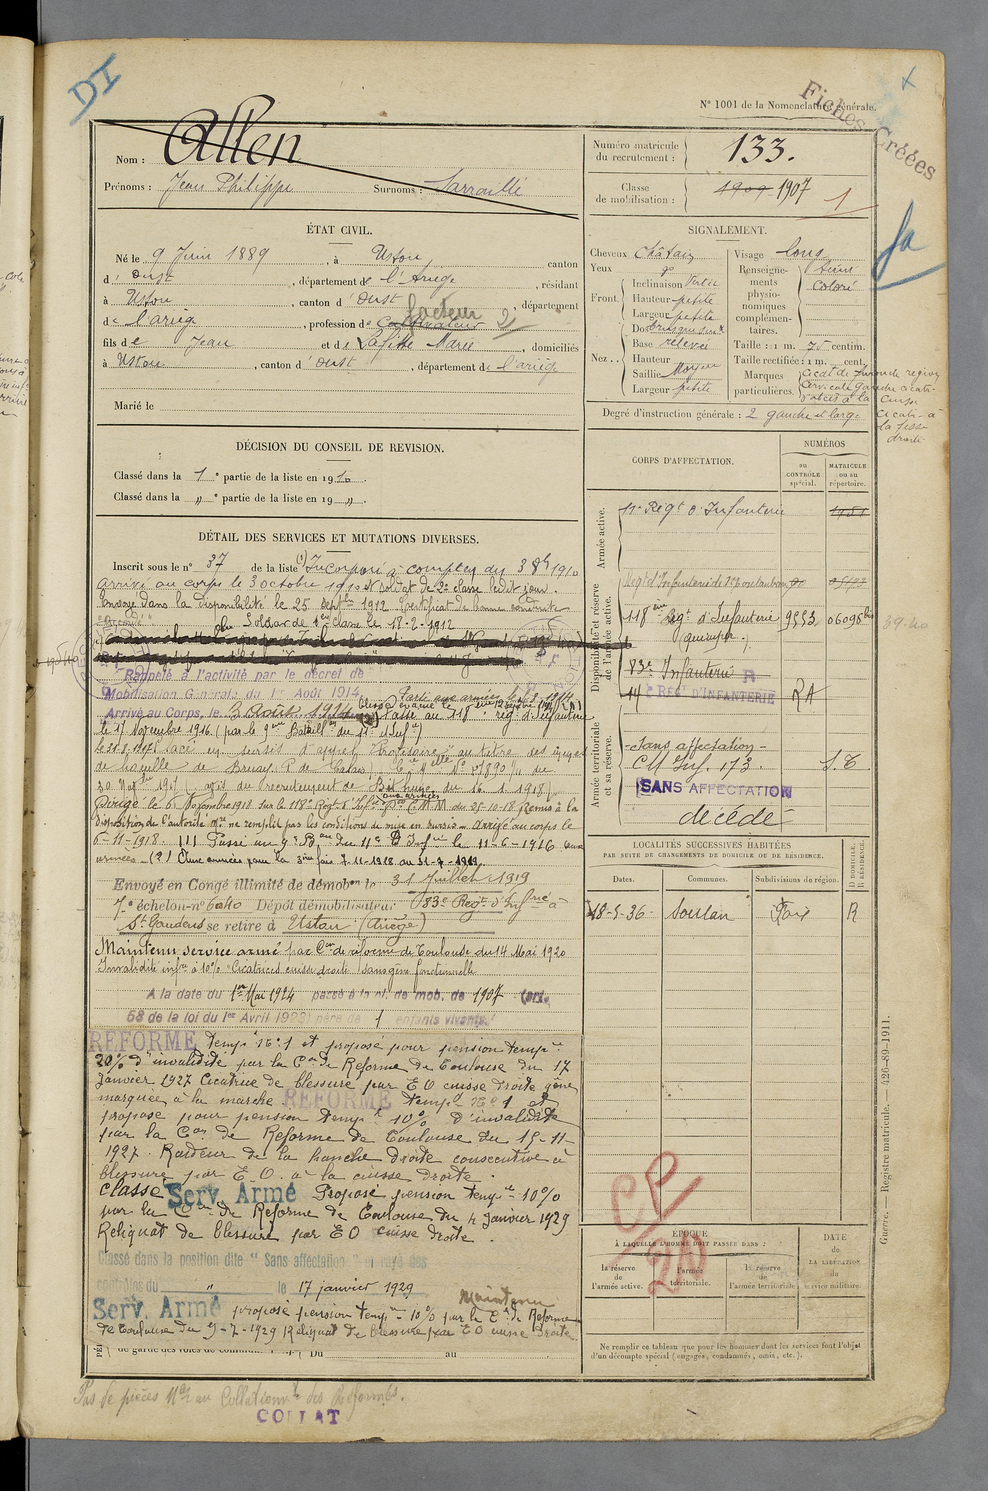 DI
Fiches Créées
N° 1001 de la Nomenclature générale.
Nom : Allen
Prénoms : Jean Philippe Surnoms : Sarraillé
Numéro matricule du recrutement : 133.
Classe de mobilisation : 1909 1907
1
ÉTAT CIVIL.
Né le 9 Juin 1889, à Ustou canton
d'Oust, département de l'Ariège, résidant
à Ustou, canton d'Oust département
facteur
de l'ariège, profession de Cultivateur
fils de Jean et de Lafitte Marie, domiciliés
à Ustou, canton d'Oust, département de l'ariège
Marié le
SIGNALEMENT.
Cheveux Châtain
Yeux
Front. Inclinaison Vertic
Hauteur petite
Largeur petite
Nez . . Dos
Base relevée
Hauteur
Saillie Moyen
Largeur petite
Visage long
Renseignements physionomiques complémentaires. teint coloré
Taille : 1 m. centim.
Taille rectifiée : 1 m. cent.
Marques particulières.
Degré d'instruction générale : 2 gauche et large
cicat. à la fesse droite
DÉCISION DU CONSEIL DE REVISION.
Classé dans la 1e partie de la liste en 1910.
Classé dans la „ e partie de la liste en 19 „ .
DÉTAIL DES SERVICES ET MUTATIONS DIVERSES.
Inscrit sous le n° 37 de la liste (1) Incorporé à compter du 3 8bre 1910
arrivé au corps le 3 octobre 1910 et soldat de 2e classe ledit jour.
Envoyé dans la disponibilité le 25 septbre 1912. Certificat de bonne conduite
"accordé" Soldat de 1ère classe le 18-2-1912
Rappelé à l'activité par le décret de
Mobilisation Générale du 1er Août 1914
Arrivé au Corps, le 3 Août 1914 Passé au 118e rég. d'Infanterie
le 17 Novembre 1916 (par le 9me Bataillon du 11e d'Infie)
de houille de Bruay P. de Calais
Dirigé le 6 Novembre 1918 sur le 118e Regt d'Infie Don C.M.M. du 25-10-18 Remis à la
disposition de l'autorité mre ne remplit pas les conditions de mise en sursis. Arrivé au corps le
6-11-1918. Passé au 9e Bon du 11e d'Infie le 11-6-1916 aux
armées
Envoyé en Congé illimité de démobon le 31 Juillet 1919
7e échelon-n° 6040 Dépôt démobilisateur 83e Regt d'Infrie à
St Gaudens se retire à Ustou (Ariège)
Maintenu service armé par Con de réforme de Toulouse du 14 Mai 1920
Invalidité infre à 10% Cicatrices cuisse droite sans gêne fonctionnelle
A la date du 1er Mai 1924 passé à la cl. de mob. de 1907 (art.
58 de la loi du 1er Avril 1923) père de 1 enfants vivants.
REFORME temp. n° 1 et proposé pour pension tempre
20% d'invalidité par la Con de Reforme de Toulouse du 17
Janvier 1927 Cicatrice de blessure par E O cuisse droite gêne
marquée à la marche REFORME tempre n° 1 et
proposé pour pension tempre 10% d'invalidité
par la Con de Reforme de Toulouse du 15-11-
1927. Raideur de la hanche droite consecutive à
blessure par E. O. à la cuisse droite.
Classé Serv. Armé Proposé pension tempre 10%
par la Con de Reforme de Toulouse du 4 Janvier 1929
Reliquat de blessure par E O cuisse droite.
Classé dans la position dite "Sans affectation" et rayé des
contrôles du „ le 17 janvier 1929
Maintenu
Serv. Armé proposé pension tempre 10% par la Con de Reforme
de Toulouse du 9-7-1929 Reliquat de blessure par E O cuisse droite
Du au
CORPS D'AFFECTATION.
NUMÉROS
au CONTRÔLE spécial.
MATRICULE ou au répertoire.
Armée active.
11e Regt d'Infanterie
Disponibilité et réserve de l'armée active.
118ème Regt d'Infanterie 9553 06096bis
quimper.
83e Infanterie R
14e REGt D'INFANTERIE RA
39.40
Armée territoriale et sa réserve.
-Sans affectation-
CM Inf. 173. S.T.
SANS AFFECTATION
décédé
LOCALITÉS SUCCESSIVES HABITÉES
PAR SUITE DE CHANGEMENTS DE DOMICILE OU DE RÉSIDENCE.
Dates. Communes. Subdivisions de région. D) DOMICILE. R) RÉSIDENCE.
18-5-36- Soulan Foix R
CP
20
ÉPOQUE
À LAQUELLE L'HOMME DOIT PASSER DANS :
la réserve de l'armée active.
l'armée territoriale.
la réserve de l'armée territoriale.
DATE de LA LIBÉRATION du service militaire.
Ne remplir ce tableau que pour les hommes dont les services font l'objet
d'un décompte spécial (engagés, condamnés, omis, etc.).
Guerre. — Registre matricule. — 426-89-1911.
Pas de pièces Mles au Collationnt des Réformés.
COLLAT